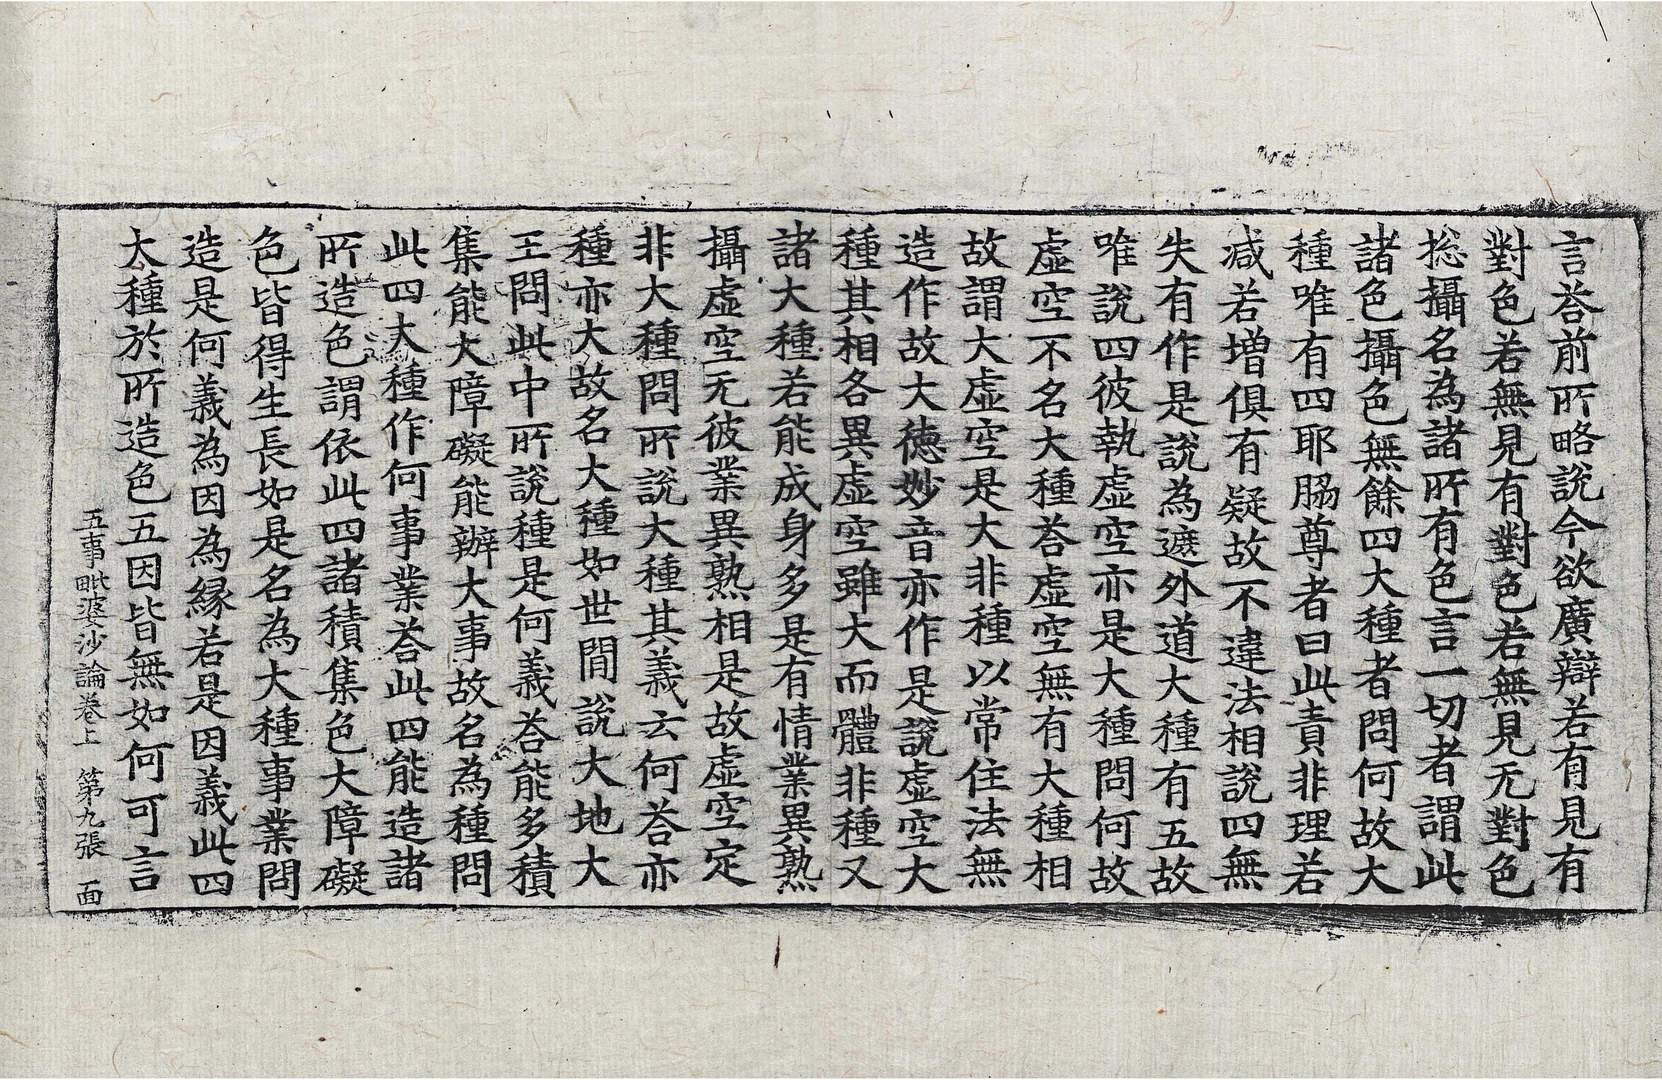 言荅前所略說今欲廣辯若有見有
對色若無見有對色若無見无對色
捴攝名為諸所有色言一切者謂此
諸色攝色無餘四大種者問何故大
種唯有四耶脇尊者曰此責非理若
減若增俱有疑故不違法相說四無
失有作是說為遮外道大種有五故
唯說四彼執虛空亦是大種問何故
虛空不名大種荅虛空無有大種相
故謂大虛空是大非種以常住法無
造作故大德妙音亦作是說虛空大
種其相各異虛空雖大而體非種又
諸大種若能成身多是有情業異熟
攝虛空无彼業異熟相是故虛空定
非大種問所說大種其義云何荅亦
種亦大故名大種如世間說大地大
王問此中所說種是何義荅能多積
集能大障礙能辦大事故名為種問
此四大種作何事業荅此四能造諸
所造色謂依此四諸積集色大障礙
色皆得生長如是名為大種事業問
造是何義為因為緣若是因義此四
大種於所造色五因皆無如何可言
五事毗婆沙論卷上　第九張　面